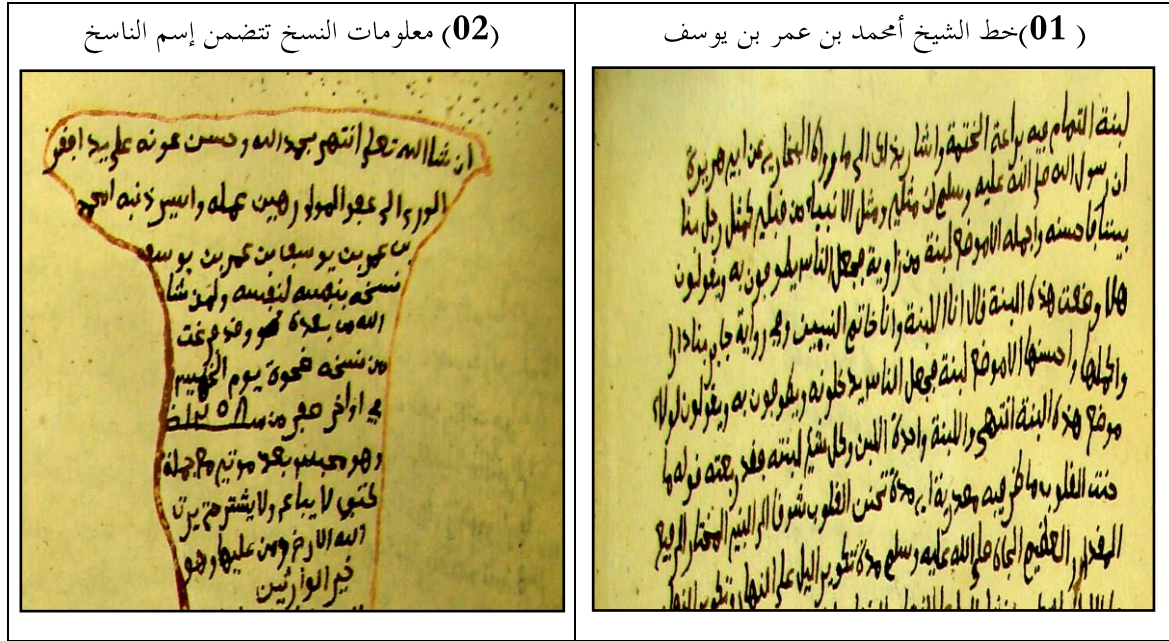 ( 01)خط الشيخ أمحمد بن عمر بن يوسف
لبنة التمام فيه براعة الختمة واشار بذلك الى ما رواه البخاري عن ابي هريرة
ان رسول الله صلى الله عليه وسلم ان مثلي ومثل الانبياء من قبلي كمثل رجل بنا
بيتا فاحسنه واجمله الا موضع لبنة من زاوية فجعل الناس يطوفون به ويقولون
هلا وضعت هذه اللبنة قال انا اللبنة وانا خاتم النبيين وفي رواية جابر بنا دارا
واكملها واحسنها الا موضع لبنة فجعل الناس يدخلونه ويطوفون به ويقولون لولا
موضع هذه اللبنة انتهى واللبنة واحدة اللبن وكل شيء لبنته فقد ربعته قوله ما
حنت القلوب ما ظرفيه مصدرية اي مدة تحنن القلوب شوقا الى النبي المختار الرفيع
العظيم الجاه صلى الله عليه وسلم مدة تكوير اليل على النهار وتكوير النهار
(02) معلومات النسخ تتضمن إسم الناسخ
ان شا الله تعلى انتهى بحمد الله وحسن عونه على يد افقر
الورى الى عفو المولى رهين عمله واسير ذنبه امحمد
بن عمر بن يوسف بن عمر بن يوسف
نسخه بنفسه لنفسه ولمن شا
الله من بعده وقد فرغت
من نسخه ضحوة يوم الخميس
في اواخر صفر من
وهو محبس بعد موتي مع جملة
كتبي لا يباع ولا يشترى حتى يرث
الله الارض ومن عليها وهو
خير الوارثين